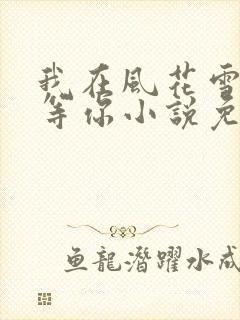 我在風花雪
等你小說免
鱼龍潛躍水成